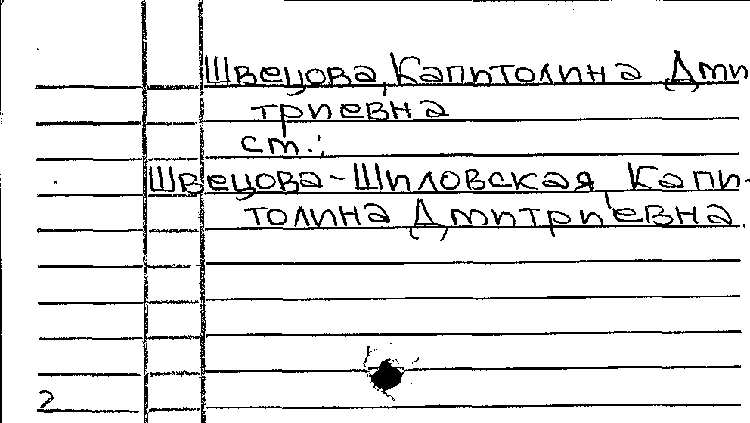 Швецова, Капитолина Дми
триевна
ст.:
Швецова-Шиловская, Капи-
толина Дмитриевна.
2